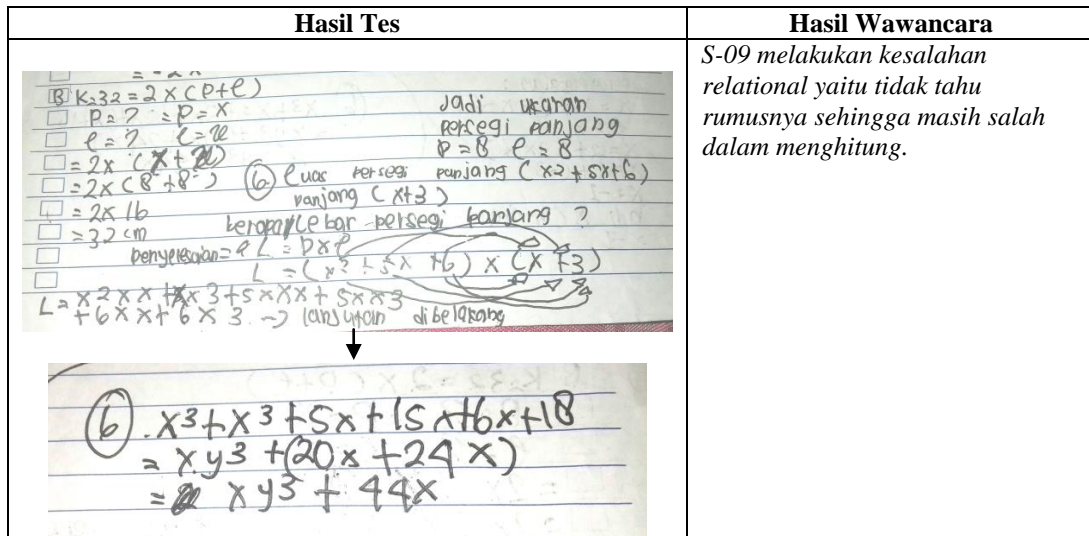 Hasil Tes
Hasil Wawancara
B K=32 = 2 x (P+l)
P = ? = P = x
l = ? l = x
= 2x (x + x)
= 2x (8 + 8)
= 2x 16
= 32 cm
Jadi ukuran
persegi panjang
P = 8 l = 8
6 Luas persegi panjang (x2 + 5x+6)
panjang (x+3)
berapa lebar persegi panjang ?
penyelesaian = L = p x l
L = (x² + 5x + 6) x (x + 3)
L = x2 x x + x 3 + 5 x x x + 5x x 3
+ 6 x x + 6 x 3 → lanjutan dibelakang
6 . x³ + x³ + 5x + 15x + 6x + 18
= xy³ + (20x + 24x)
= xy³ + 44x
S-09 melakukan kesalahan
relational yaitu tidak tahu
rumusnya sehingga masih salah
dalam menghitung.